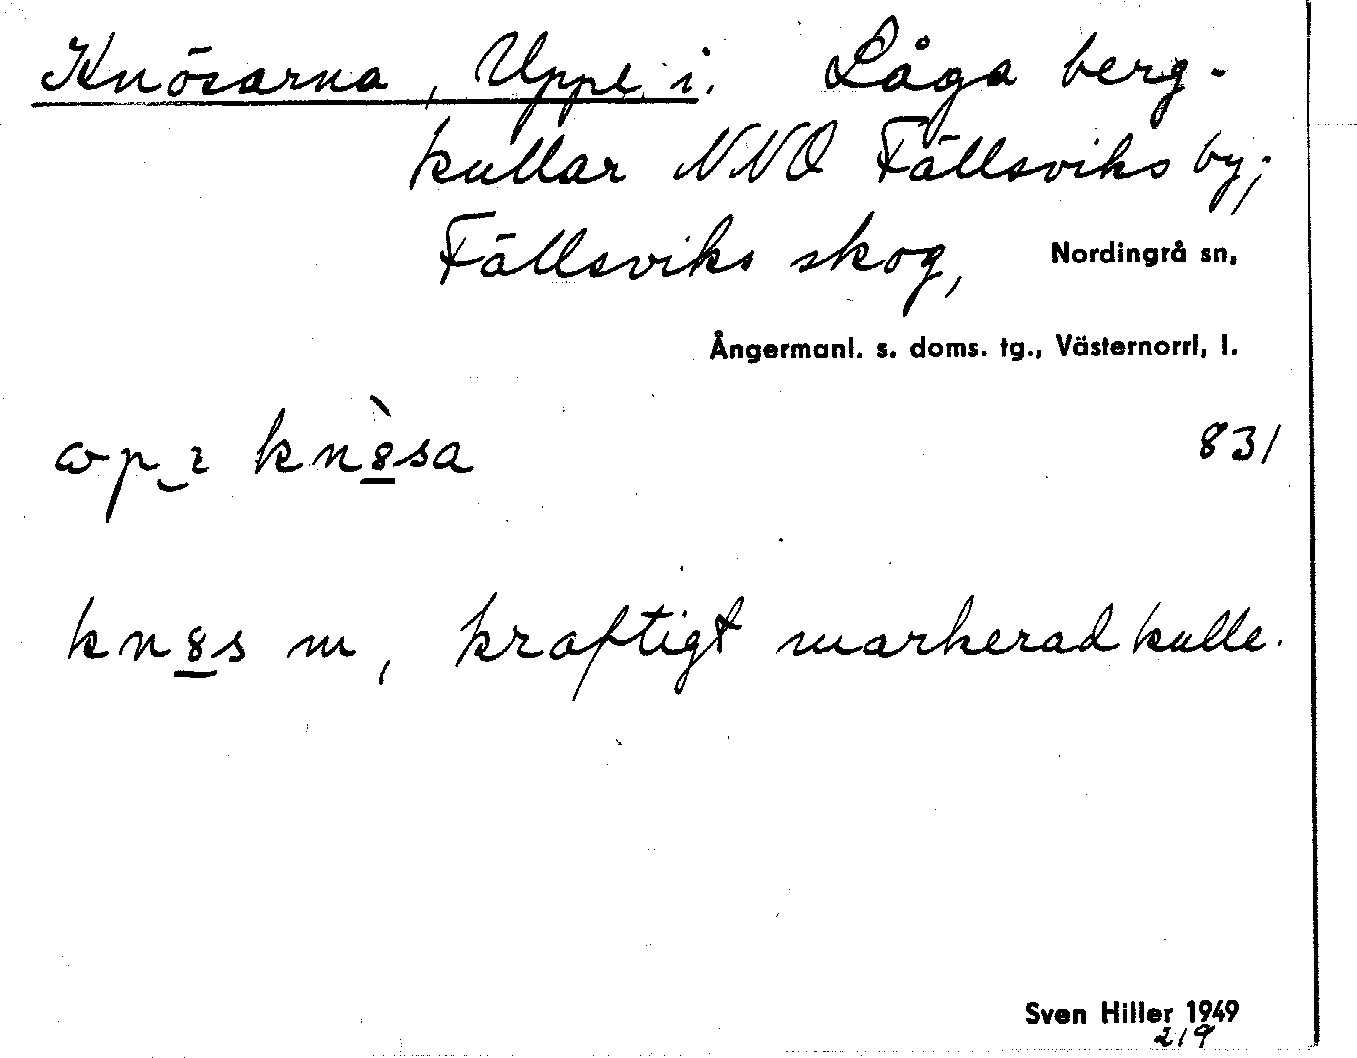 Knösarna, Uppl i. Låga berg-
kullar NNO Fällsviks by;
Fällsviks skog, Nordingrå sn,
Ångermanl. s. doms. tg., Västernorrl, l.
knösa 831
m, kraftigt markerad kulle.
Sven Hiller 1949
219